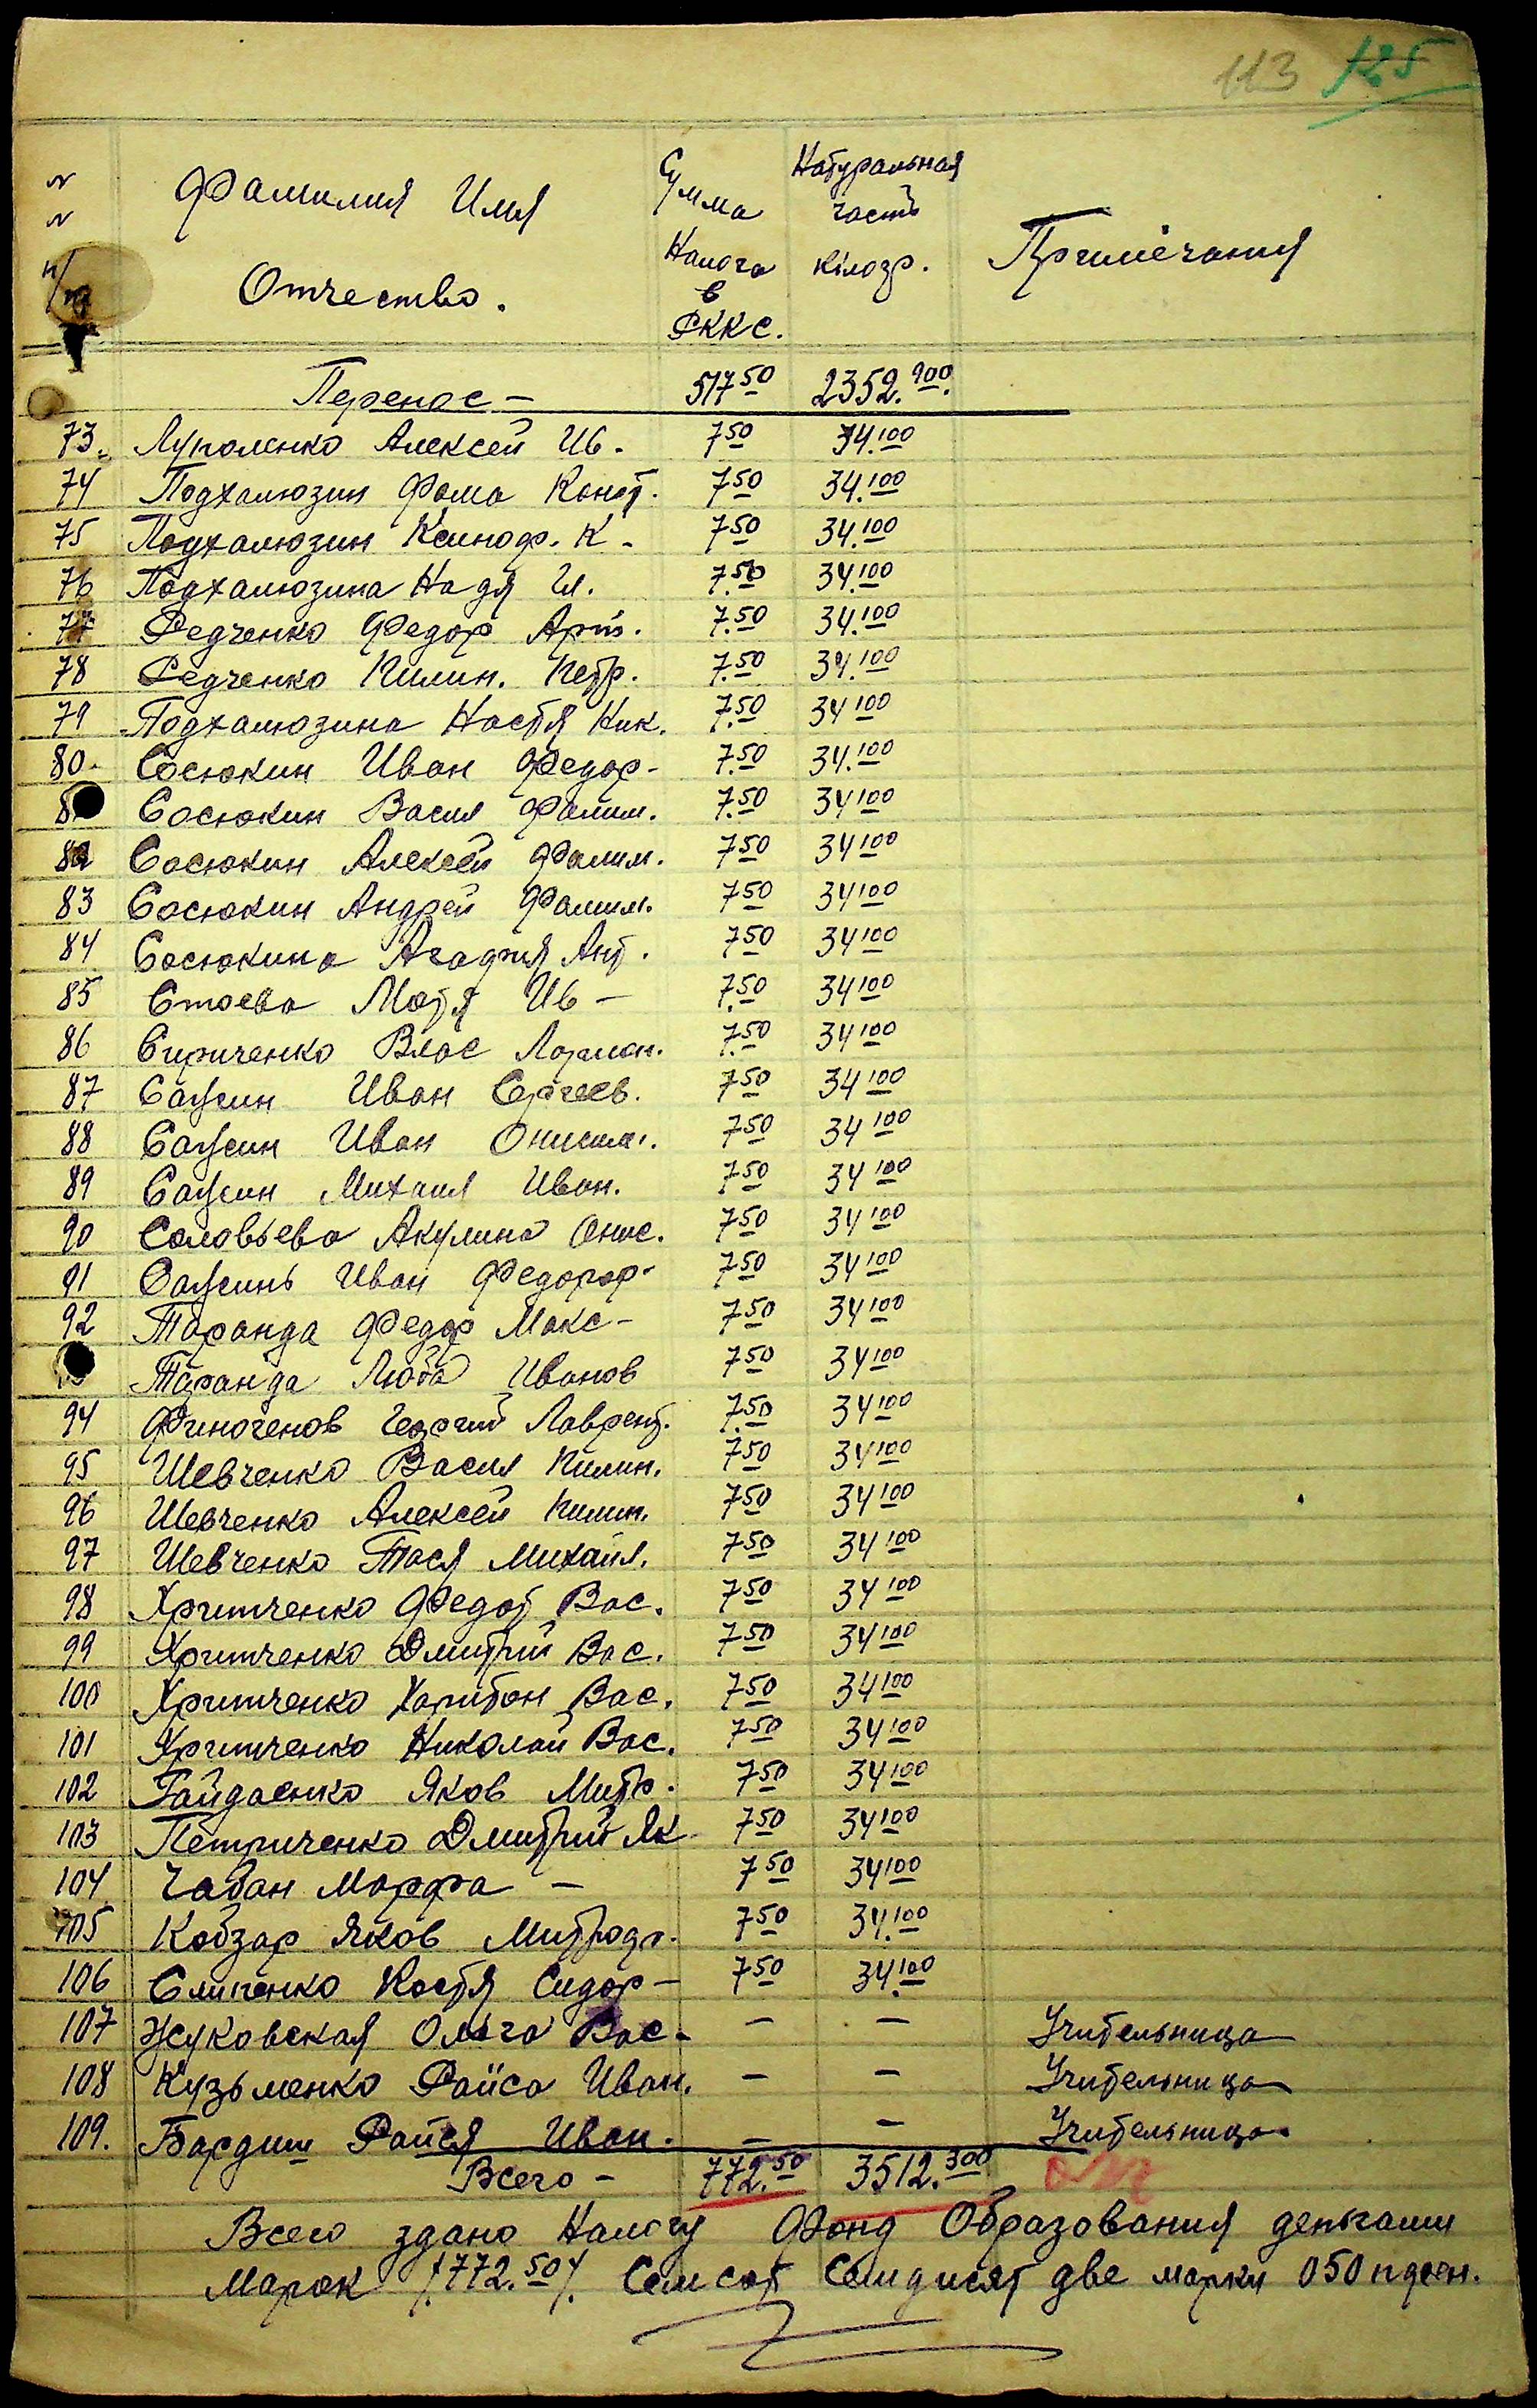 113 125
N N п/п Фамилия Имя Отчество. Сумма Налога в РККС. Натуральная часть кілогр. Примечания
Перенос – 517 50 2352.900.
73. Луполенко Алексей Ив. 7 50 34.100
74 Подхалюзин Фома Конст. 7 50 34.100
75 Подхалюзин Ксиноф. К. 7 50 34.100
76 Подхалюзина Надя Ил. 7.50 34.100
77 Редченко Федор Арт. 7.50 34.100
78 Редченко Килин. Петр. 7.50 34.100
79 Подхалюзина Настя Ник. 7.50 34 100
80. Сосюкин Иван Федор- 7.50 34.100
8 Сосюкин Васил Филим. 7.50 34 100
82 Сосюкин Алексей Филим. 7 50 34 100
83 Сосюкин Андрей Филим. 7 50 34 100
84 Сосюкина Агафия Ант. 7 50 34 100
85 Стоева Мотя Ив – 7.50 34 100
86 Сириченко Влас 7.50 34 100
87 Саусин Иван Сергеев. 7 50 34 100
88 Саусин Иван Онисим. 7 50 34 100
89 Саусин Михаил Иван. 7 50 34 100
90 Соловьева Акулина Онис. 7 50 34 100
91 Саусинь Иван Федорор- 7 50 34 100
92 Таранда Федор Макс – 7 50 34 100
Таранда Люба Иванов 7 50 34 100
94 Финогенов Георгий Лаврент. 7.50 34 100
95 Шевченко Васил Килин. 7 50 34 100
96 Шевченко Алексей Килин. 7 50 34 100
97 Шевченко Тося Михаил. 7 50 34 100
98 Хритченко Федот Вас. 7 50 34 100
99 Хритченко Дмитрий Вас. 7 50 34 100
100 Хритченко Харитон Вас. 7 50 34 100
101 Хритченко Николай Вас. 7 50 34 100
102 Гайдаенко Яков Митр. 7 50 34 100
103 Петриченко Дмитрий Як 7 50 34 100
104 Чабан Марфа – 7 50 34 100
105 Кобзар Яков Митроф. 7 50 34.100
106 Слипенко Костя Сидор – 7 50 34.100
107 Жуковская Ольга Вас – – – Учительница
108 Кузьменко Раїса Иван. – – Учительница
109. Бардиш Раися Иван. – – Учительница
Всего – 772.50 3512.300
Всего здано Налогу Фонд Образования деньгами
Марок /.772.50/. Семсот Семдисят две марки 050 пфен.